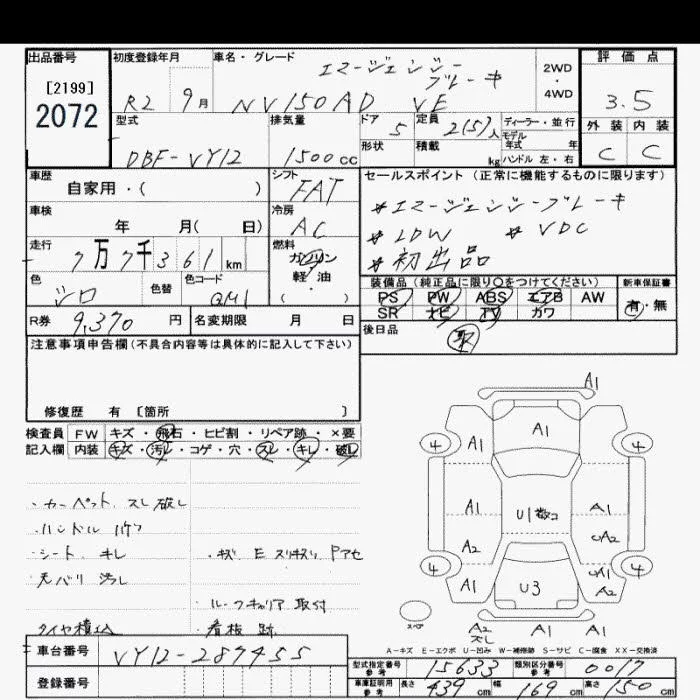 出品番号
[2199]
2072
初度登録年月
R2 9月
車名・グレード
エマージェンシーブレーキ
NV150AD VE
2WD
・
4WD
評価点
3.5
外装 内装
C C
型式
DBF-VY12
排気量
1500cc
ドア
5
定員
2(5)人
ディーラー・並行
モデル
年式 年
形状
積載
kg
ハンドル 左・右
車歴
自家用・( )
シフト
FAT
車検
年 月( 日)
冷房
AC
走行
7万7千361km
燃料
ガソリン
軽・油
( ・ )
色
シロ
色替
色コード
QM1
R券 9,370円
名変期限 月 日
セールスポイント (正常に機能するものに限ります)
#エマージェンシーブレーキ
#LDW #VDC
#初出品
装備品(純正品に限り○をつけてください)
新車保証書
PS PW ABS エアB AW
SR ナビ TV カワ
有・無
後日品
取
注意事項申告欄(不具合内容等は具体的に記入して下さい)
修復歴 有 [箇所 ]
検査員
記入欄
FW キズ・飛石・ヒビ割・リペア跡・×要
内装 キズ・汚レ・コゲ・穴・スレ・キレ・破レ
・カーペット スレ破レ
・ハンドル
・シート キレ
・キズ E スリキズ P アセ
天バリ 汚レ
・ルーフキャリア取付
タイヤ積込
・看板跡
A1
4 A1 A1 A1 4
A1 U1 A1
A2 A2
4 4
A1 U3 A1
A2
スペア
A2
スレ
A1 A1
A-キズ E-エクボ U-凹み W-補修跡 S-サビ C-腐食 XX-交換済
車台番号 VY12-287455
登録番号
型式指定番号
参考
15633
類別区分番号
参考
0017
車庫証明用
参考
長さ 439cm 幅 169cm 高さ 150cm